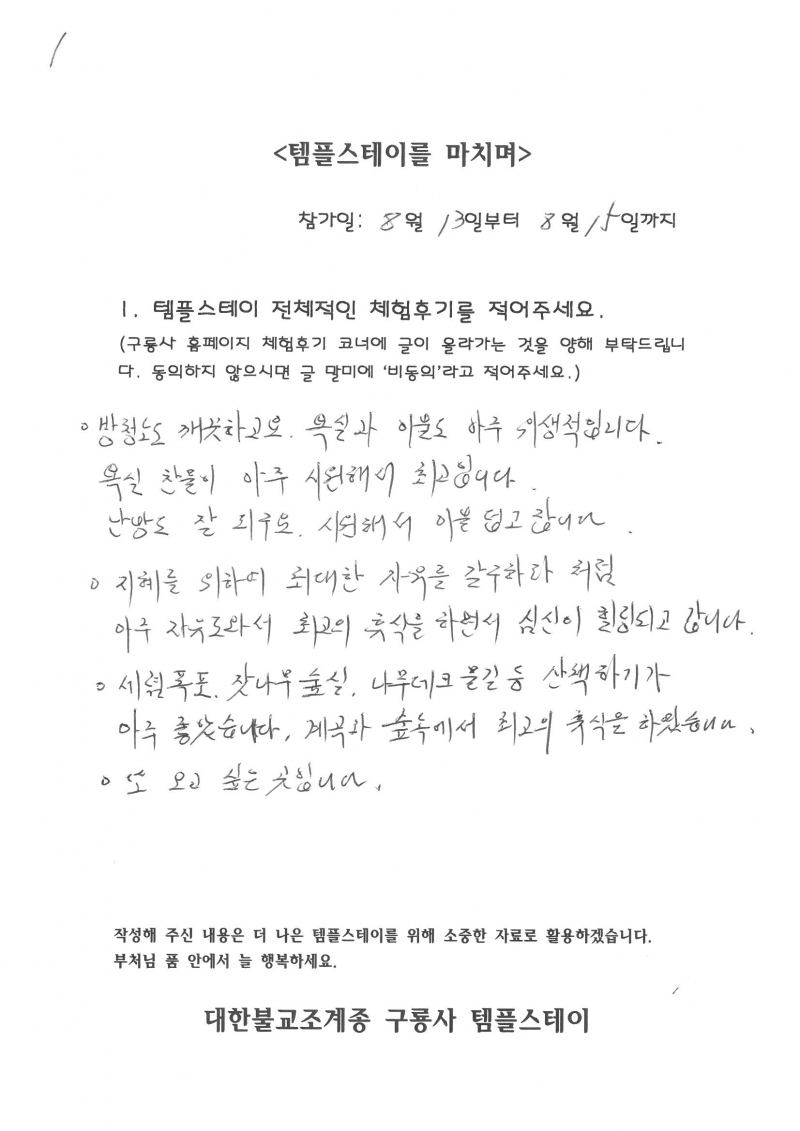 <템플스테이를 마치며>
참가일: 8월 13일부터 8월 15일까지
1. 템플스테이 전체적인 체험후기를 적어주세요.
(구룡사 홈페이지 체험후기 코너에 글이 올라가는 것을 양해 부탁드립니
다. 동의하지 않으시면 글 말미에 '비동의'라고 적어주세요.)
◦ 방청소도 깨끗하고요. 욕실과 이불도 아주 위생적입니다.
욕실 찬물이 아주 시원해서 최고입니다.
난방도 잘 되구요. 시원해서 이불 덥고 잡니다.
◦ 지혜를 위하여 최대한 자유를 갈구하라 처럼
아주 자유로와서 최고의 휴식을 하면서 심신이 힐링되고 갑니다.
◦ 세렴폭포. 잣나무숲실. 나무데크 물길 등 산책하기가
아주 좋았습니다. 계곡과 숲속에서 최고의 휴식을 하였습니다.
◦ 또 오고 싶은 곳입니다.
작성해 주신 내용은 더 나은 템플스테이를 위해 소중한 자료로 활용하겠습니다.
부처님 품 안에서 늘 행복하세요.
대한불교조계종 구룡사 템플스테이